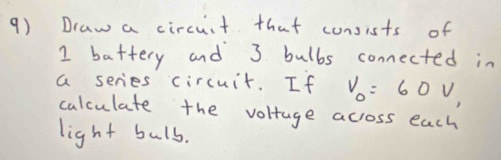 9) Draw a circuit that consists of
1 battery and 3 bulbs connected in
a series circuit. If V₀ = 60 V,
calculate the voltage across each
light bulb.